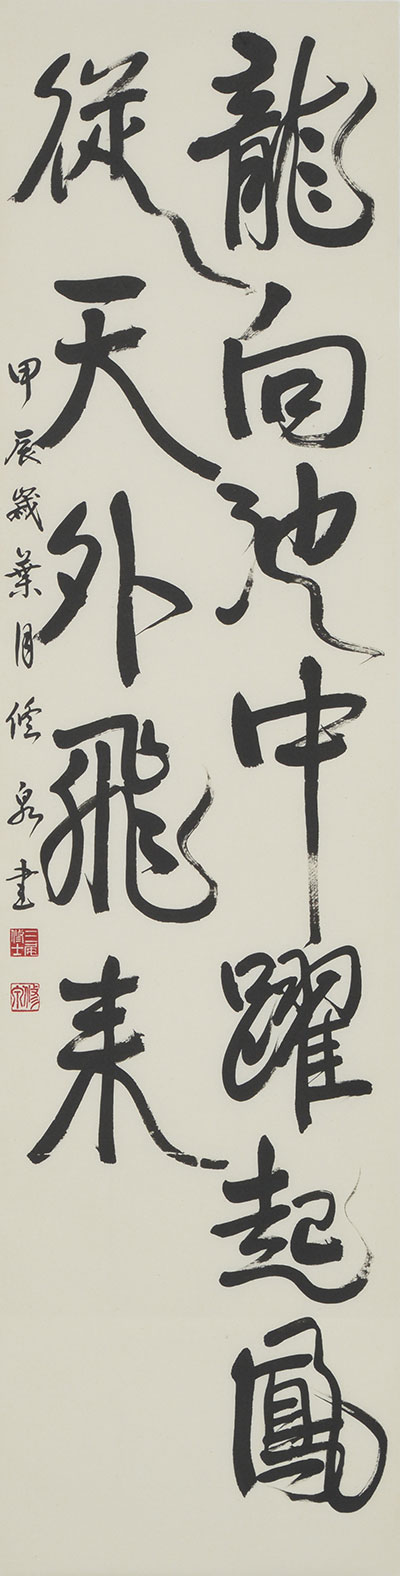 龍向池中躍起鳳
從天外飛来
甲辰歳葉月泉書